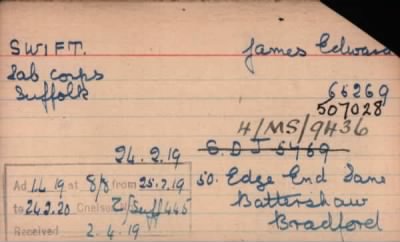 SWIFT. James Edward
Lab Corps
Suffolk 65269
507028
4/MS/9436
24.2.19 S.D.J 5469
Ad 1.4.19 at 8/8 from 25.2.19 50. Edge End Lane
to 24.2.20 Chelsea Z/Suff 445 Battershaw
Received 2.4.19 Bradford